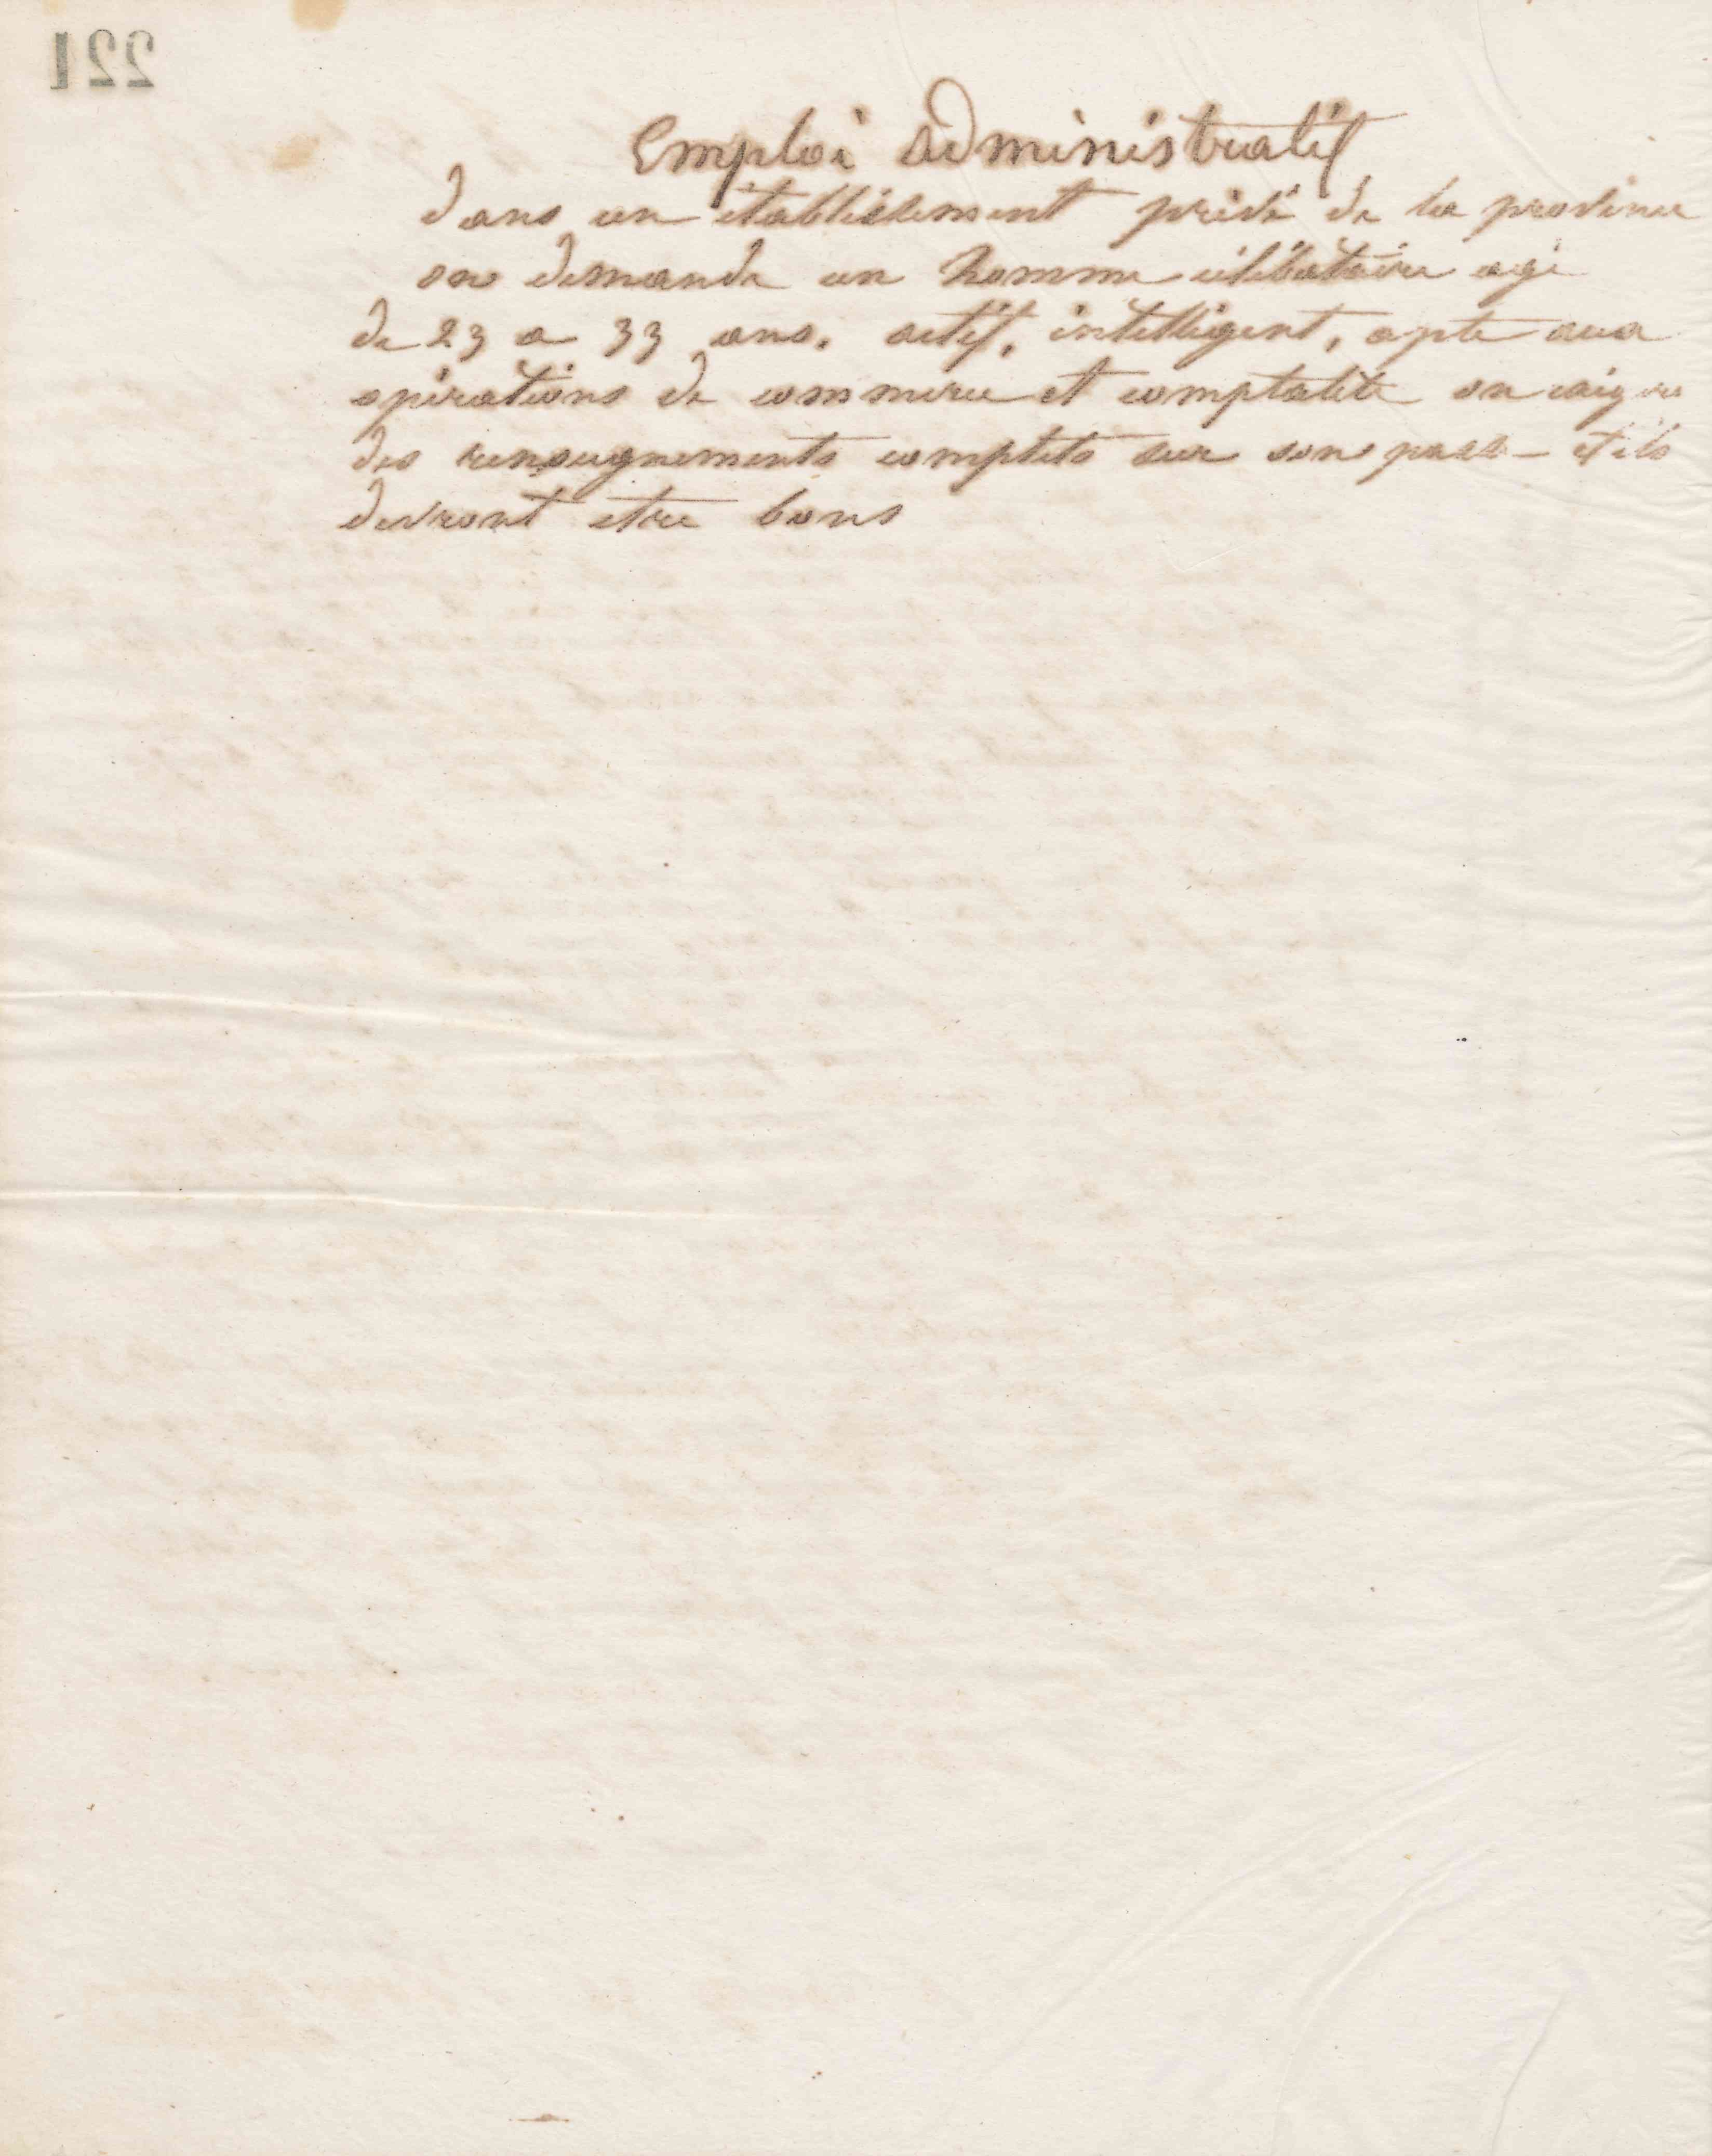 221
Emploi administratif
dans un établissement privé de la province
on demande un homme célibataire agé
de 23 a 33 ans. actif, intelligent, apte aux
opérations de commerce et comptalité on exigera
des renseignements complets sur son passé – et ils
devront etre bons